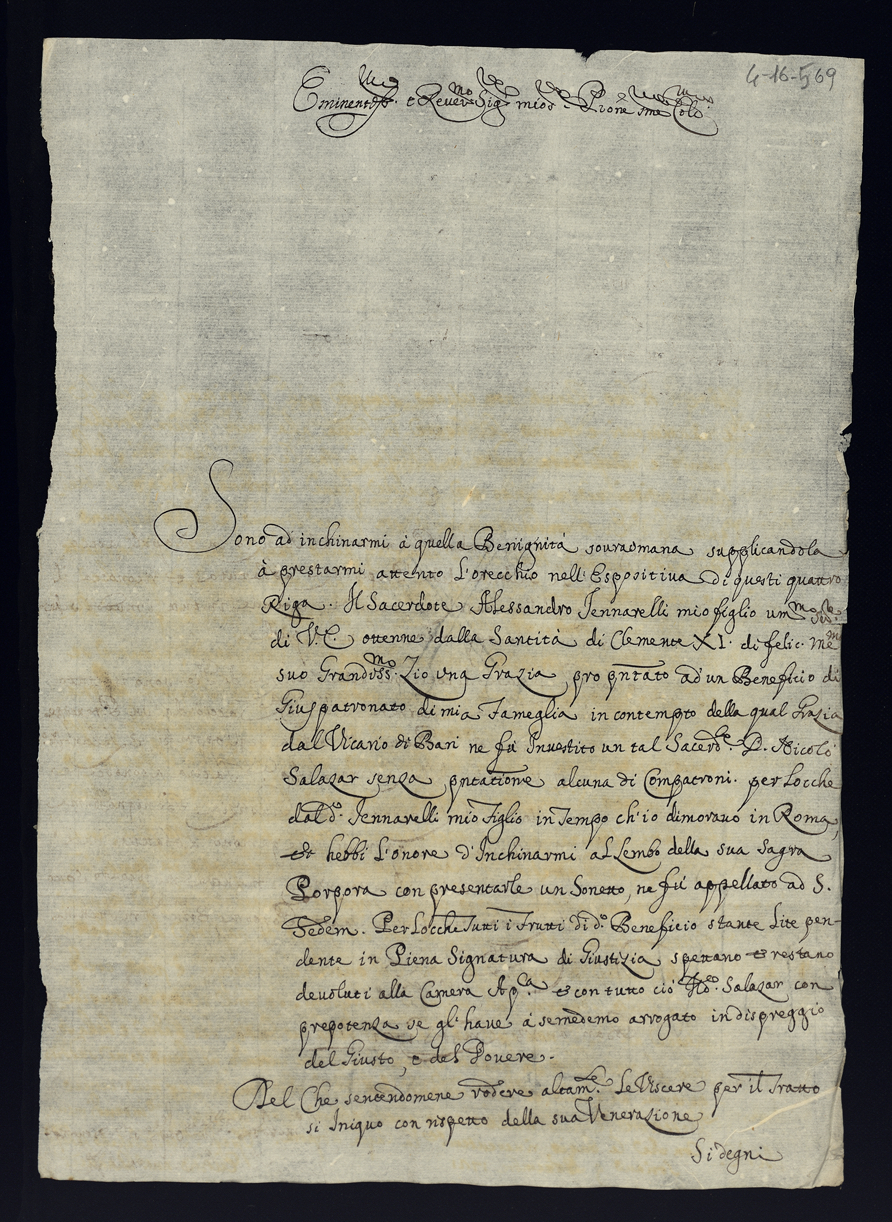 4-16-569
Eminentiss.mo e Rever.mo Sig.re mio e P.rone sme Col.mo
Sono ad inchinarmi à quella Benignità souraomana supplicandola
à prestarmi attento L'orecchio nell'Espositiva di questi quattro
Riga. Il Sacerdote Alessandro Jennarelli mio figlio um.mo
di V.E. ottenne dalla Santità di Clemente XI. di felic. me
suo Grandiss.mo Zio una Grazia pro pntato ad un Beneficio di
Giuspatronato di mia Fameglia in contempto della qual Grazia
dal Vicario di Bari ne fù Investito un tal Sacerd.te D. Nicolò
Salazar senza pntatione alcuna di Compatroni. per Locche
dal d.o Jennarelli mio Figlio in Tempo ch'io dimoravo in Roma,
et hebbi L'onore d'Inchinarmi al Lembo della sua Sagra
Porpora con presentarle un Sonetto, ne fù appellato ad S.
Sedem. Per Locche Tutti i Frutti di d.o Beneficio stante Lite pen-
dente in Piena Signatura di Giustizia spettano et restano
devoluti alla Camera Ap.ca et con tutto ciò d.o Salazar con
prepotenza se gl'have à semedemo arrogato in dispreggio
del Giusto, e del Povere.
Del Che sentendomene rodere altam.te Le Viscere per il Tratto
si Iniquo con rispetto della sua Venerazione
Si degni